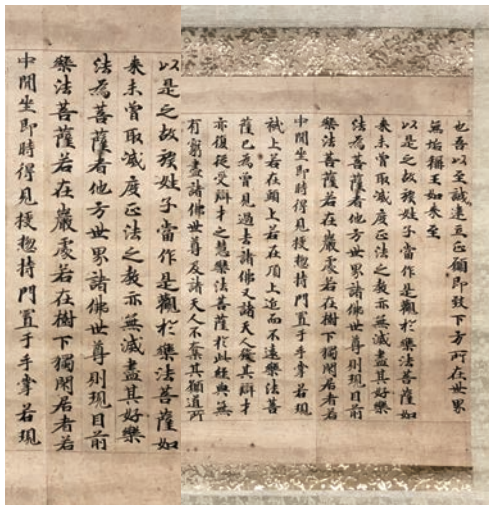 也吾以至誠逮立正願即致下方所在世界
無垢稱王如來至
以是之故族姓子當作是觀於樂法菩薩如
來未曾取滅度正法之教亦無滅盡其好樂
法為菩薩者他方世界諸佛世尊則現目前
樂法菩薩若在巖處若在樹下獨閑居者若
中閒坐即時得見授揔持門置于手掌若現
上若在頭上若在頂上近而不遠樂法菩
薩已為曾見過去諸佛又諸天人其辯才
亦復從受辯才之慧樂法菩薩於此經典無
有窮盡諸佛世尊及諸天人不棄其願道所
以是之故族姓子當作是觀於樂法菩薩如
來未曾取滅度正法之教亦無滅盡其好樂
法為菩薩者他方世界諸佛世尊則現目前
樂法菩薩若在巖處若在樹下獨閑居者若
中閒坐即時得見授揔持門置于手掌若現